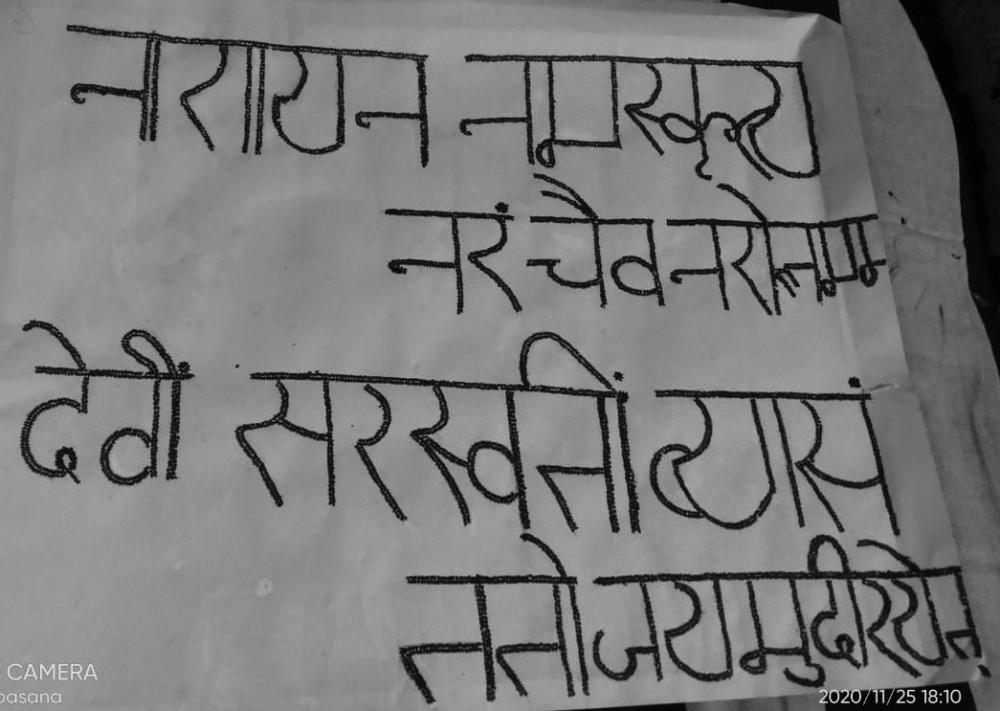 नारायन नमस्कृत्य
नरं चैव नरोत्तमम
देवीं सरस्वतीं व्यासं
ततो जय मुदीरयेत्
CAMERA
pasana
2020/11/25 18:10